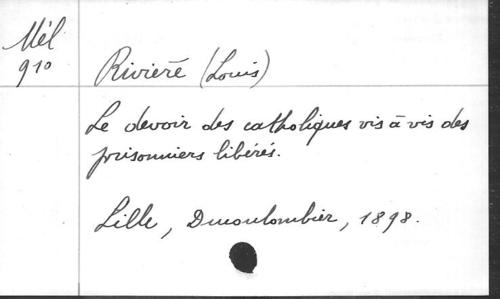 Mél
910
Rivière (Louis)
Le devoir des catholiques vis à vis des
prisonniers libérés.
Lille, Dmoulombier, 1898.